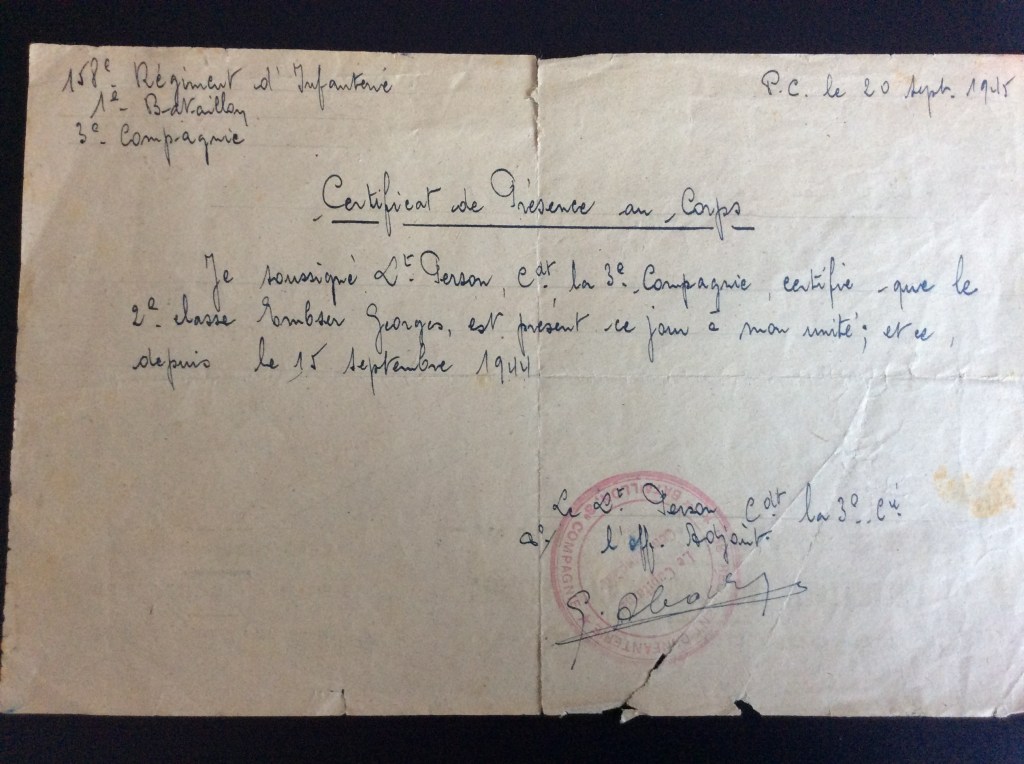 158e Régiment d'Infanterie
P.C. le 20 Sept. 1945
1e Bataillon
3e Compagnie
Certificat de Présence au Corps
Je soussigné Lt Person, Cdt la 3e Compagnie, certifie que le
2e classe Embser Georges, est présent ce jour à mon unité; et ce,
depuis le 15 septembre 1944
Le Lt Person Cdt la 3e Cie
l'off. Adjoint.
COMPAGNIE
D'INFANTERIE